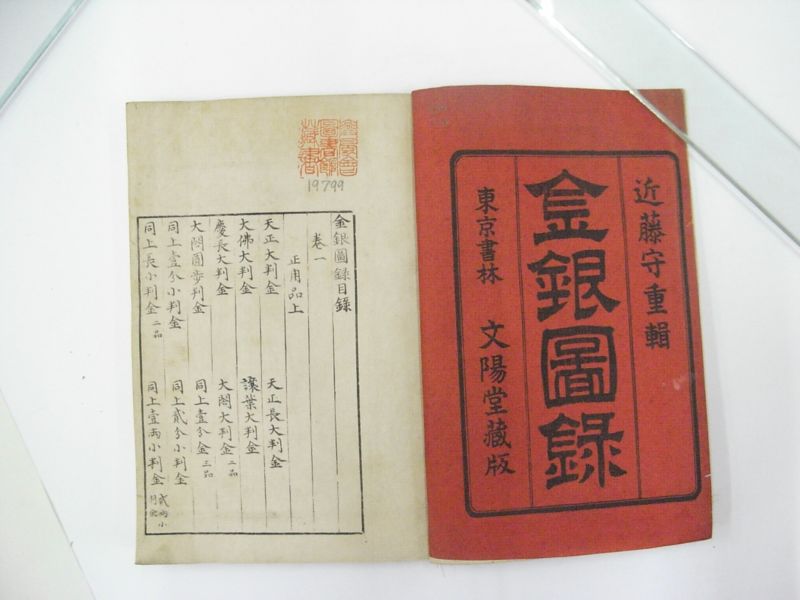 近藤守重輯
金銀圖錄
東京書林 文陽堂藏版
19799
金銀圖錄目錄
卷一
正用品上
天正大判金 天正長大判金
大佛大判金 讓葉大判金
慶長大判金 大閤大判金二品
大閤圓歩判金 同上壹分金三品
同上壹分小判金 同上貳分小判金
同上長小判金二品 同上壹兩小判金